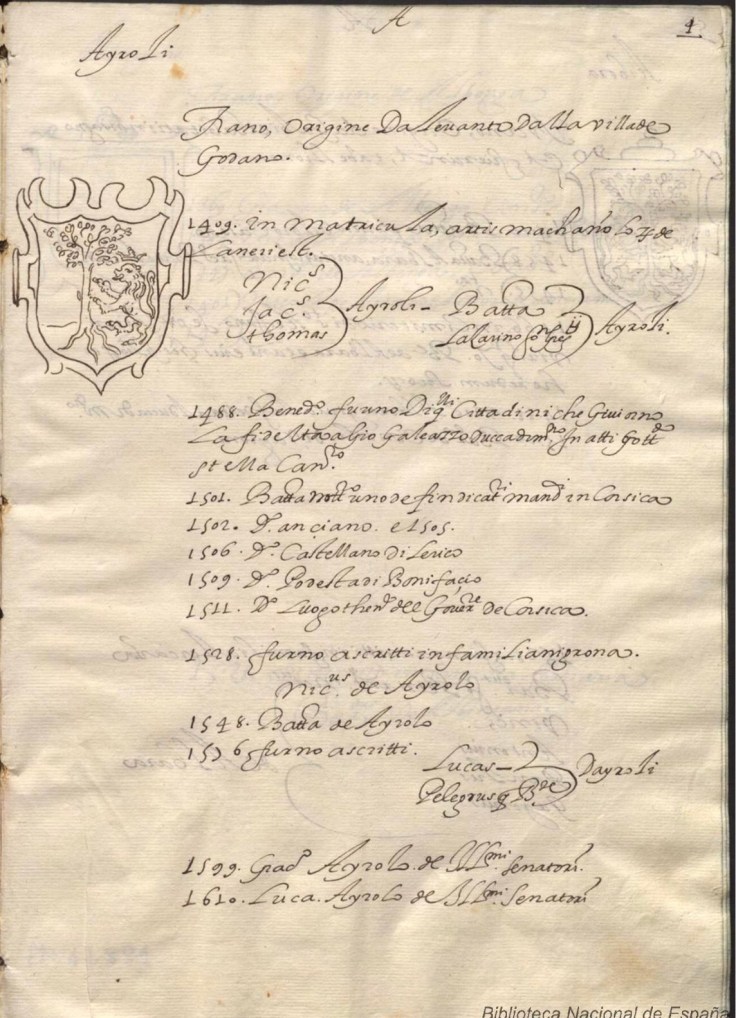 A
1
Ayroli
Hano, Origine Da Levanto Dalla villa de
Godano.
1409. in Matricula, artis machano Lo de
Laneri est.
Nic.s
Jac.s
thomas
Ayroli - Batta
Ayroli.
1488. Bened.o fu uno Di q.lli Cittadini che Giurorno
La fideltà a Gio Galeazzo Duca di in atti Gott.do
stella Can.ro
1501. Batta uno de sindicat.ri mand.i in Corsica
1502. D.o anciano. e 1505.
1506. D.o Castellano di Lerico
1509. D.o Podesta di Bonifacio
1511. D.o Luogothen.te del Gover.re de Corsica.
1528. furno ascritti in familia nigrona.
Nic.us de Ayrolo
1548. Batta de Ayrolo
1576 furno ascritti.
Lucas
Pelegrus q B.de
Dayroli
1599. Ayrolo de Ill.mi Senatori.
1610. Luca Ayrolo de Ill.mi Senatori
Biblioteca Nacional de España